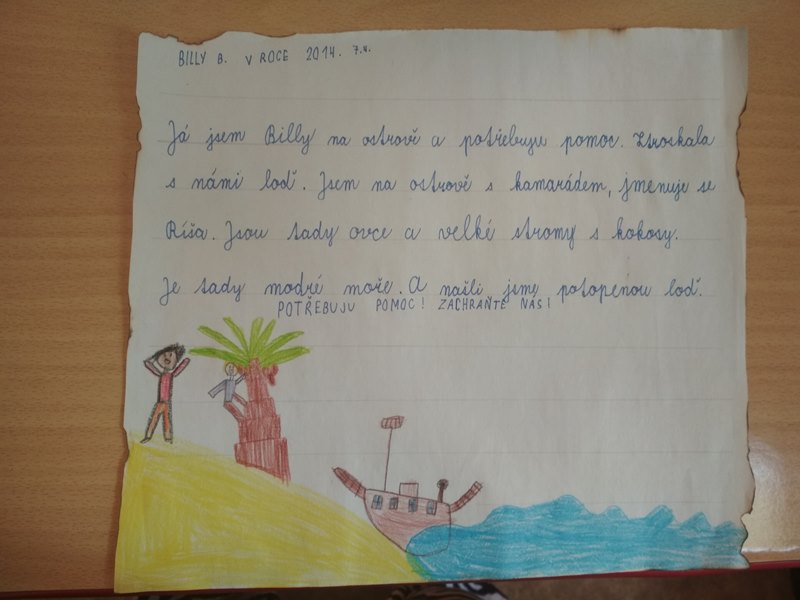 BILLY B. V ROCE 2014. 7.4.
Já jsem Billy na ostrově a potřebuju pomoc. Ztroskala
s námi loď. Jsem na ostrově s kamarádem, jmenuje se
Ríša. Jsou tady ovce a velké stromy s kokosy.
Je tady modré moře. A našli jsme potopenou loď.
POTŘEBUJU POMOC! ZACHRAŇTE NÁS!